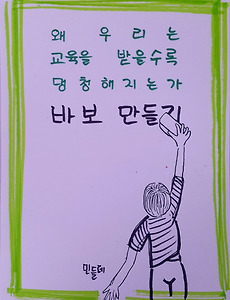 왜 우리는
교육을 받을수록
멍청해지는가
바보 만들기
민들레